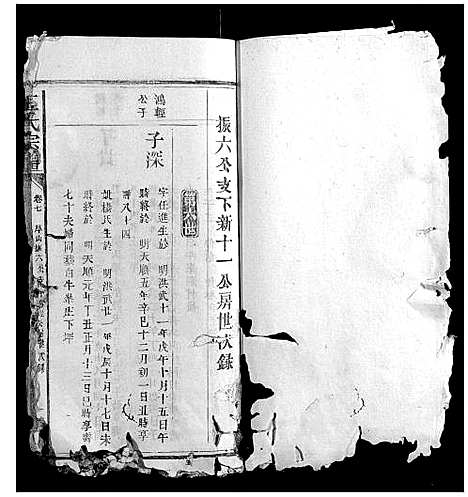 振六公支下新十一公房世次錄
第十六世
鴻輕公子
子深
字任進生於 明洪武十一年戊午十月十五日午
時終於 明天順五年辛巳十二月初一日丑時享
壽八十四
妣楊氏生於 明洪武廿一年戊辰十月十七日未
時終於 明天順元年丁丑正月十三日巳時享壽
七十夫婦同穆自牛車庄下坪
氏宗譜
卷七